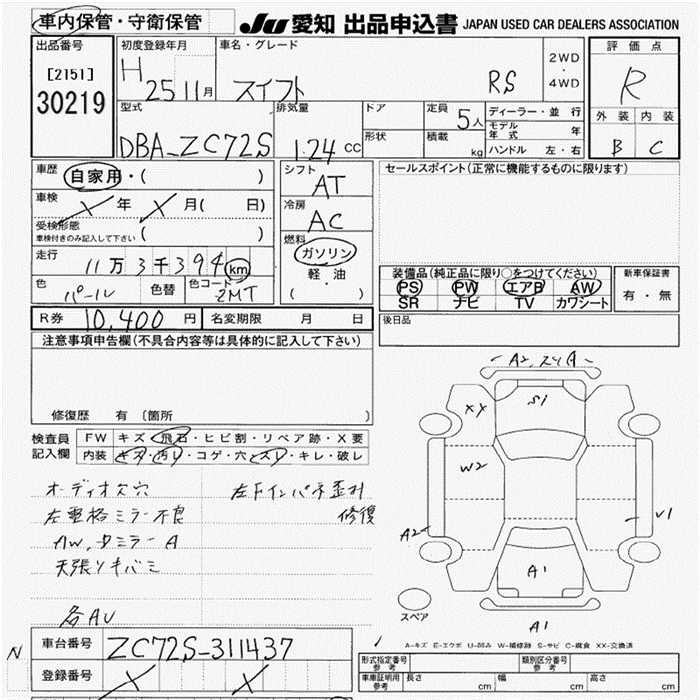 車内保管・守衛保管
JU 愛知 出品申込書 JAPAN USED CAR DEALERS ASSOCIATION
出品番号
[2151]
30219
初度登録年月
H 25 11月
車名・グレード
スイフト RS
2WD・4WD
評価点
R
外装 内装
B C
型式
DBA-ZC72S
排気量
1.24 CC
ドア
形状
定員 5人
積載 kg
ディーラー・並行
モデル年式 年
ハンドル 左・右
車歴 自家用・( )
車検 X 年 X 月( 日)
受検形態
車検付きのみ記入して下さい ( )
走行
11万3千394km
色 パール 色替 色コード 2MT
シフト
AT
冷房
AC
燃料
ガソリン
軽・油
( )
セールスポイント(正常に機能するものに限ります)
装備品(純正品に限り○をつけてください)
PS PW エアB AW
SR ナビ TV カワシート
新車保証書
有・無
R券 10,400 円 名変期限 月 日
後日品
注意事項申告欄(不具合内容等は具体的に記入して下さい)
修復歴 有 (箇所 )
検査員記入欄
FW キズ・飛石・ヒビ割・リペア跡・X要
内装 キズ・汚レ・コゲ・穴・スレ・キレ・破レ
オーディオ欠穴
左下インパネ歪み
修復
左電格ミラー不良
AW,ドミラーA
天張リキバミ
各AU
A2,スリA
S1
XX
W2
A2
V1
A1
スペア
A1
A-キズ E-エクボ U-凹み W-補修跡 S-サビ C-腐食 XX-交換済
N
車台番号 ZC72S-311437
登録番号 X X
形式指定番号
参考
類別区分番号
参考
車庫証明用
参考
長さ cm 幅 cm 高さ cm